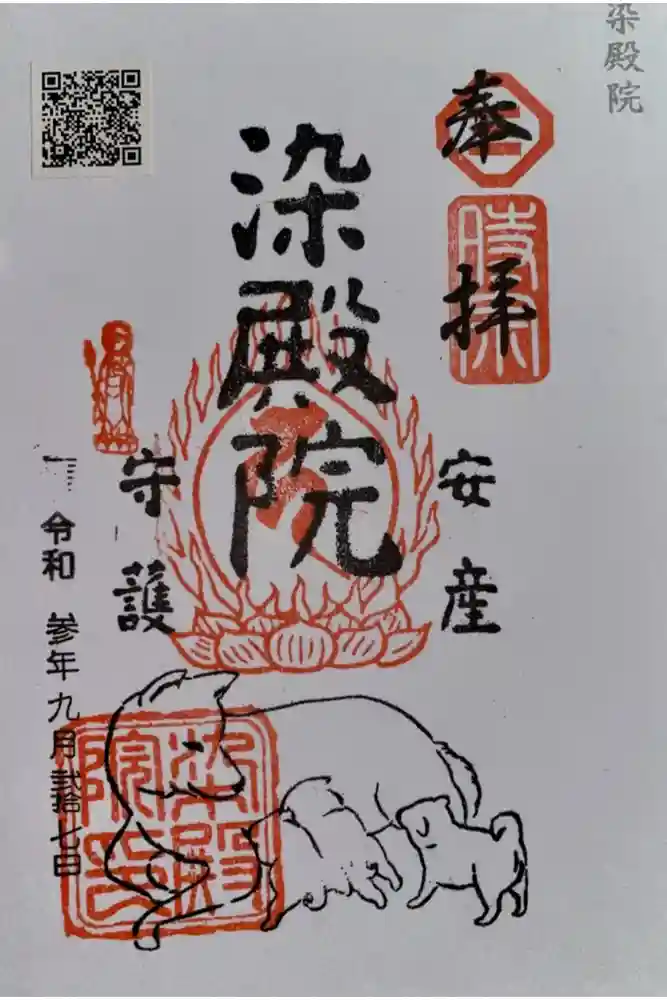 染殿院
奉拝
時宗
染殿院
安産
守護
令和 参年九月弐拾七日
染殿
院印